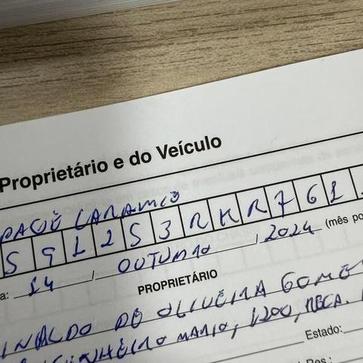 Proprietário e do Veículo
CARAMIO
S G L 2 S 3 R K R 7 6 1
a: 14 / OUTUBRO / 2024 (mês po
PROPRIETÁRIO
INALDO DE OLIVEIRA GOME
MARIO, 1200,
Estado: